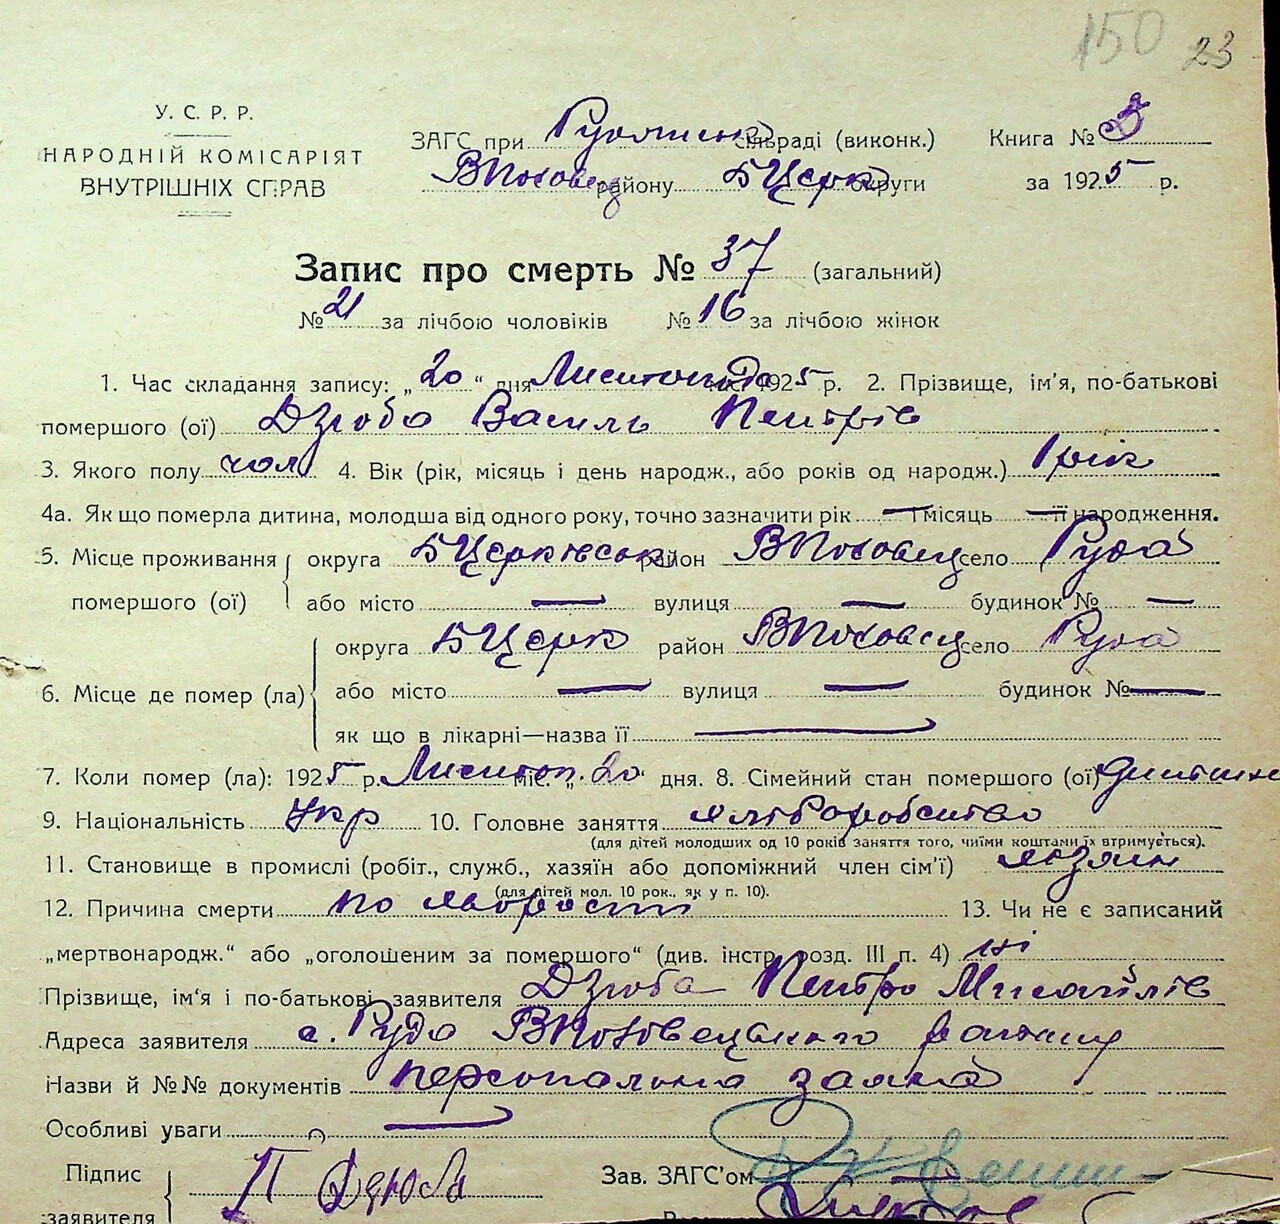 150 23
У. С. Р. Р.
НАРОДНІЙ КОМІСАРІЯТ
ВНУТРІШНІХ СПРАВ
ЗАГС при сільраді (виконк.) Книга №
ВПоловец району БЦерк округи за 1925 р.
Запис про смерть № 37 (загальний)
№ 21 за лічбою чоловіків № 16 за лічбою жінок
1. Час складання запису: „20" дня Листопада міс. 1925 р. 2. Прізвище, ім'я, по-батькові
помершого (ої) Дзюба Василь Петрів
3. Якого полу чол 4. Вік (рік, місяць і день народж., або років од народж.) 1 рік
4а. Як що померла дитина, молодша від одного року, точно зазначити рік — місяць — її народження.
5. Місце проживання округа БЦерківська район ВПоловец село Руда
помершого (ої) або місто — вулиця — будинок № —
округа БЦерк район ВПоловец село Руда
6. Місце де помер (ла) або місто — вулиця — будинок № —
як що в лікарні—назва її —
7. Коли помер (ла): 1925 р. Листоп. міс. „20" дня. 8. Сімейний стан помершого (ої) дитина
9. Національність Укр 10. Головне заняття хліборобство
(для дітей молодших од 10 років заняття того, чиїми коштами їх втримується).
11. Становище в промислі (робіт., служб., хазяїн або допоміжний член сім'ї) хозяїн
(для дітей мол. 10 рок., як у п. 10).
12. Причина смерти по хворости 13. Чи не є записаний
„мертвонародж." або „оголошеним за помершого" (див. інстр. розд. III п. 4) ні
Прізвище, ім'я і по-батькові заявителя Дзюба Петро Михайлів
Адреса заявителя с. Руда ВПоловецького району
Назви й №№ документів персональна заява
Особливі уваги —
Підпис П Дзюба Зав. ЗАГС'ом
заявителя